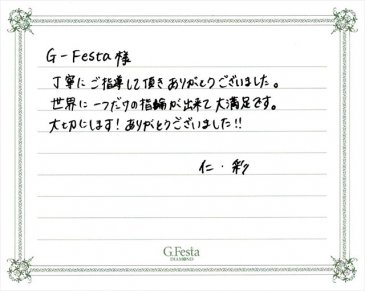 G-Festa 様
丁寧にご指導して頂きありがとうございました。
世界に一つだけの指輪が出来て大満足です。
大切にします!ありがとうございました!!
仁・彩
G.Festa
DIAMOND